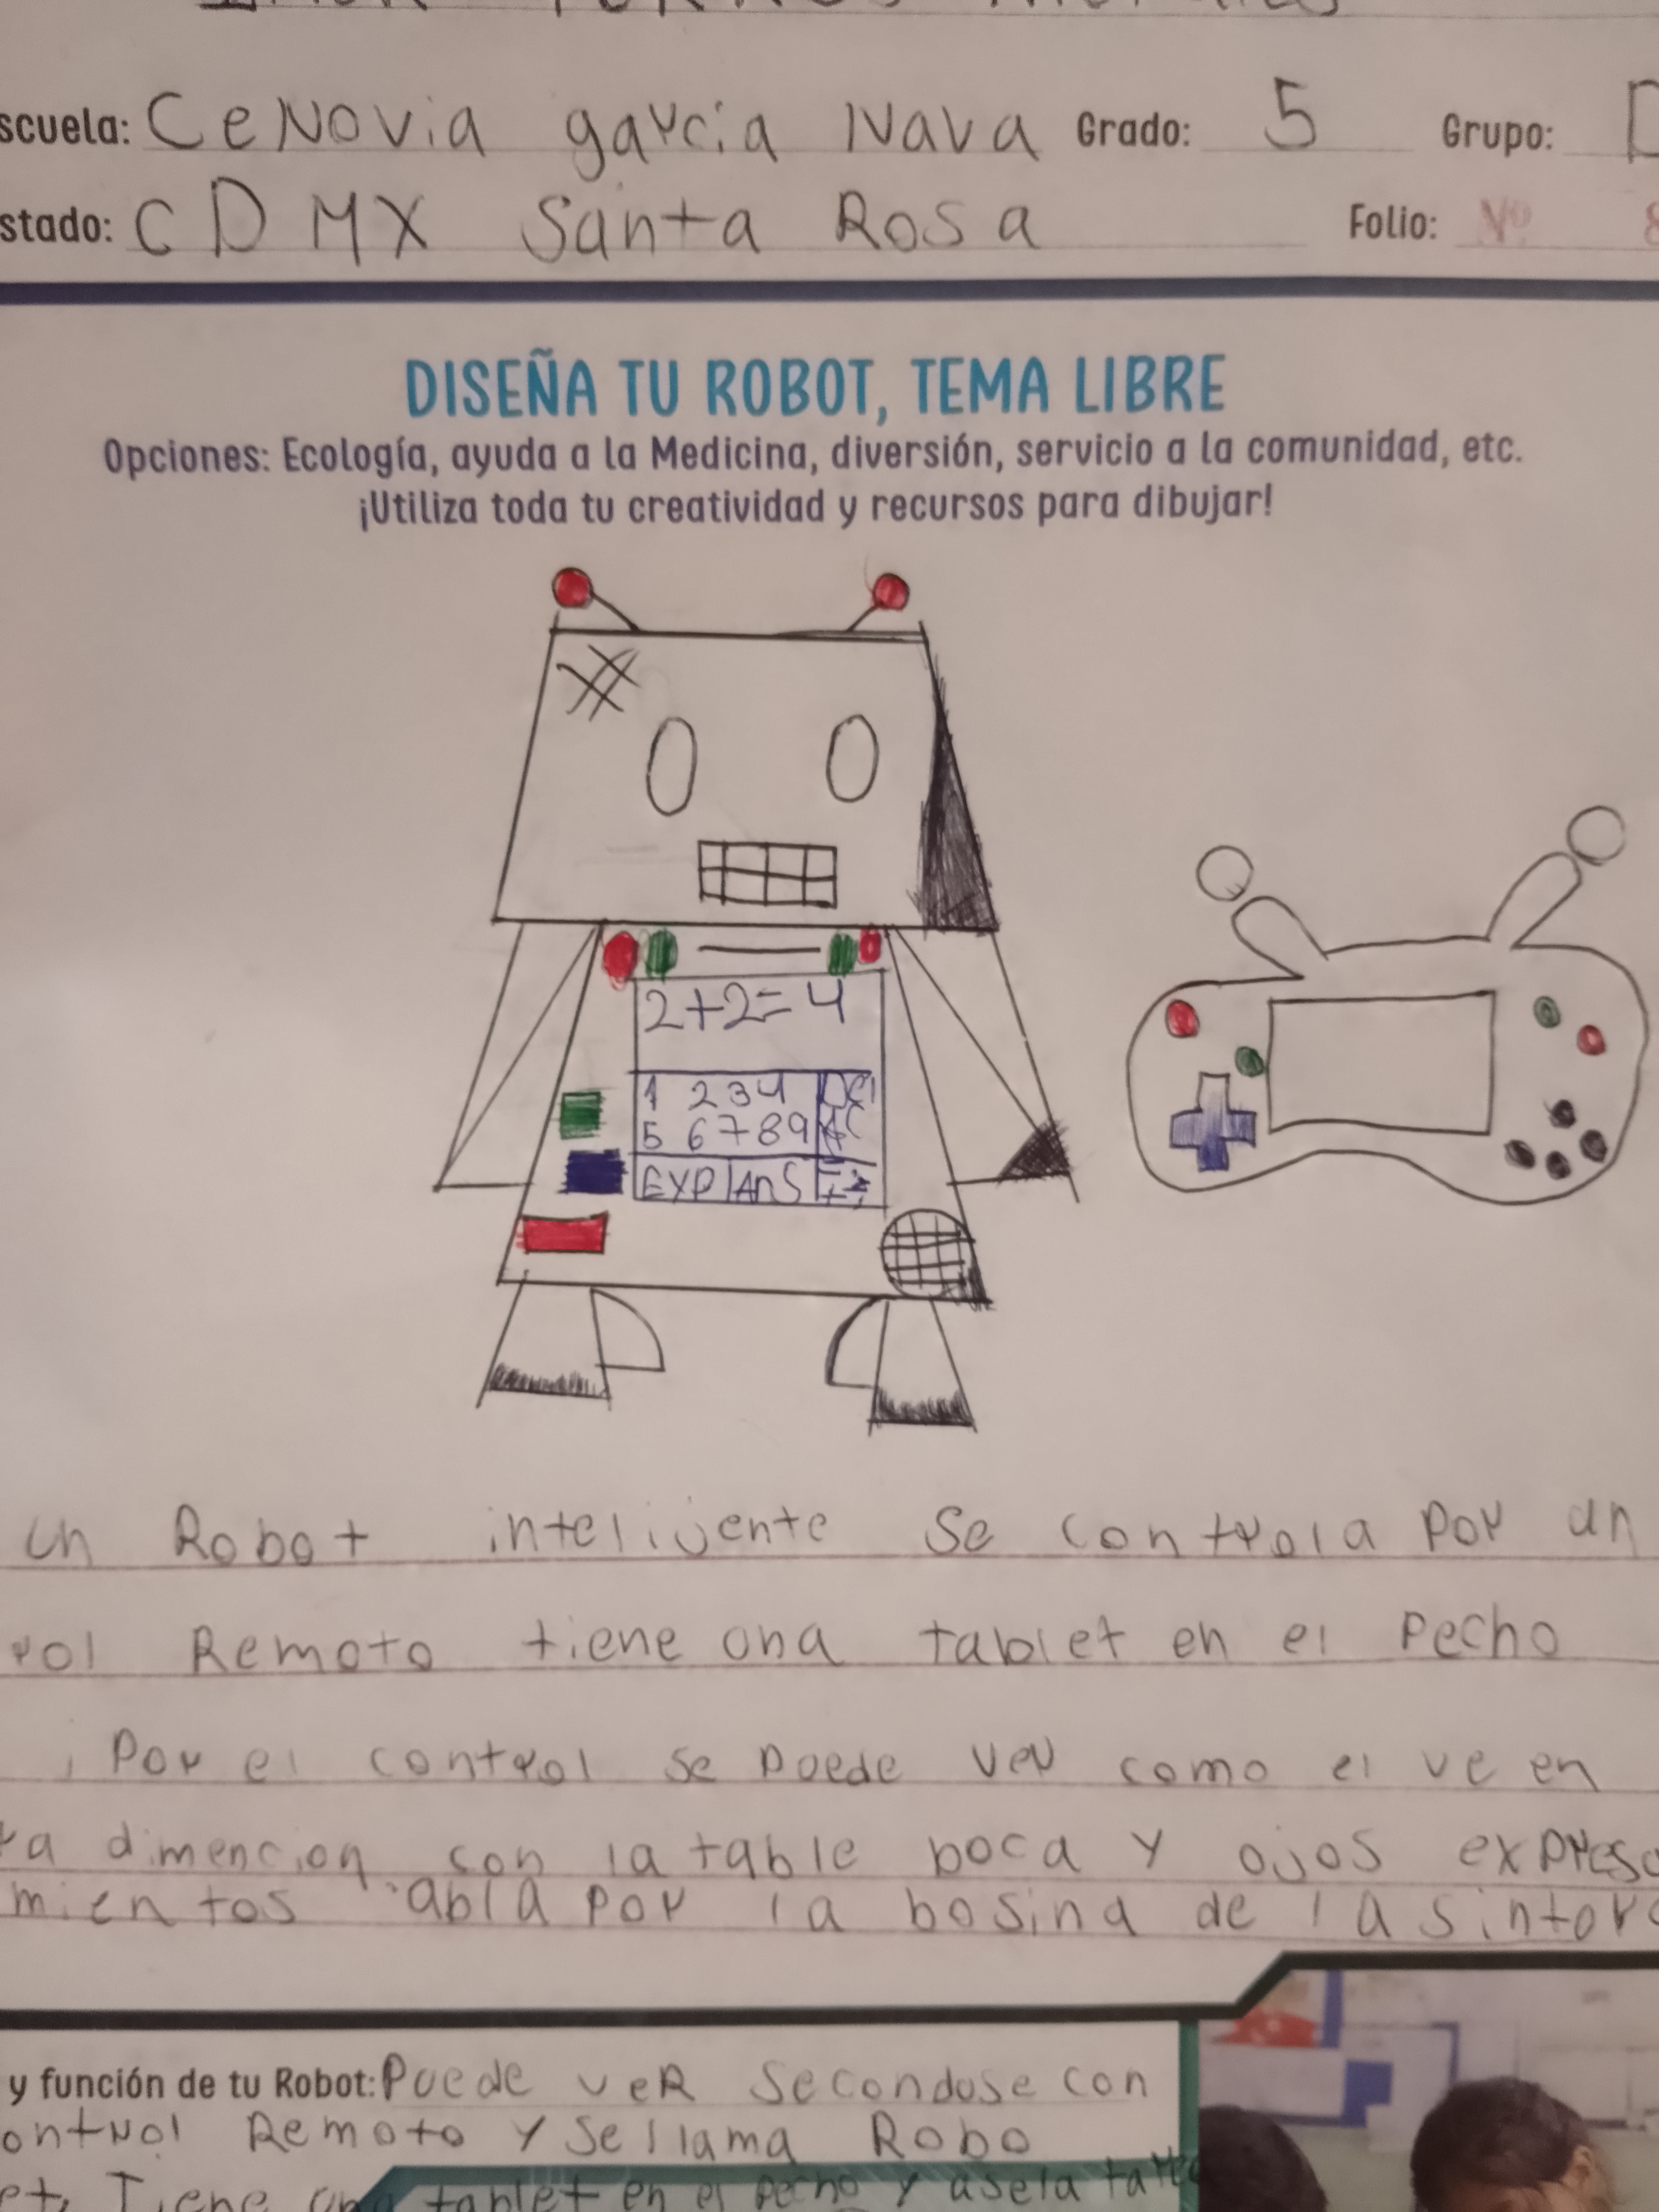 scuela: CeNovia garcia Nava Grado: 5 Grupo:
stado: CDMX Santa Rosa Folio: Nº 8
DISEÑA TU ROBOT, TEMA LIBRE
Opciones: Ecología, ayuda a la Medicina, diversión, servicio a la comunidad, etc.
¡Utiliza toda tu creatividad y recursos para dibujar!
2+2=4
1 2 3 4 DEl
5 6 7 8 9 AC
EXP AnS
un Robot intelijente se controla por un
rol Remoto tiene ona tablet en el pecho
por el control se poede ver como el ve en
ra dimencion con la table boca y ojos expresa
mientos abla por la bosina de la sintora
y función de tu Robot: Poede veR secondose con
ontrol Remoto y se llama Robo
et, Tiene una tablet en el pecho y asela